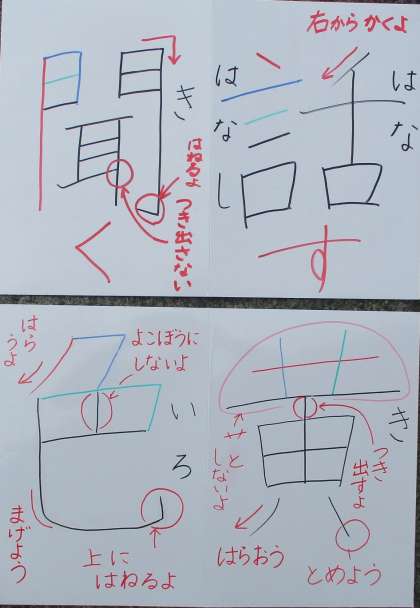 右からかくよ
はな
話
はなし
す
き
聞
はねるよ
つき出さない
く
き
黄
つき
出すよ
艹と
しないよ
はらおう
とめよう
いろ
色
よこぼうに
しないよ
はら
うよ
まげよう
上に
はねるよ